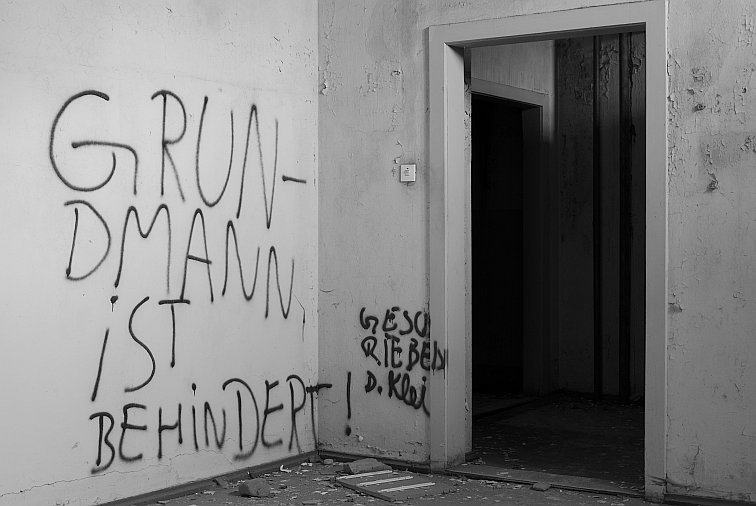 GRUN-
DMANN
iST
BEHiNDERT!
GESCH
RIEBEN
D. Klei